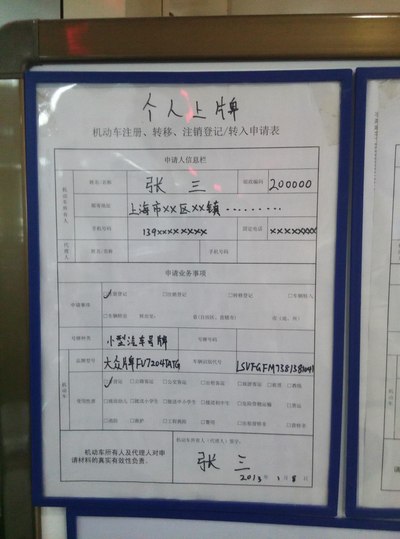 个人上牌
机动车注册、转移、注销登记/转入申请表
申请人信息栏
机动车所有人
姓名/名称 张三 邮政编码 200000
邮寄地址 上海市××区××镇.........
手机号码 139×××××××× 固定电话 ××××××××
代理人 姓名/名称 手机号码
申请业务事项
申请事项 ☑注册登记 □注销登记 □转移登记 □车辆转入
□车辆转出 转出至: 省(自治区、直辖市) 市(地、州)
号牌种类 小型汽车号牌 号牌号码
机动车
品牌型号 大众牌FV7204TATG 车辆识别代号
使用性质
☑非营运 □公路客运 □公交客运 □出租客运 □旅游客运 □租赁 □教练
□接送幼儿 □接送小学生 □接送中小学生 □接送初中生 □危险货物运输 □货运
□消防 □救护 □工程救险 □警用 □出租营转非 □营转非
机动车所有人及代理人对申请材料的真实有效性负责。
机动车所有人(代理人)签字:
张三
2013年1月8日